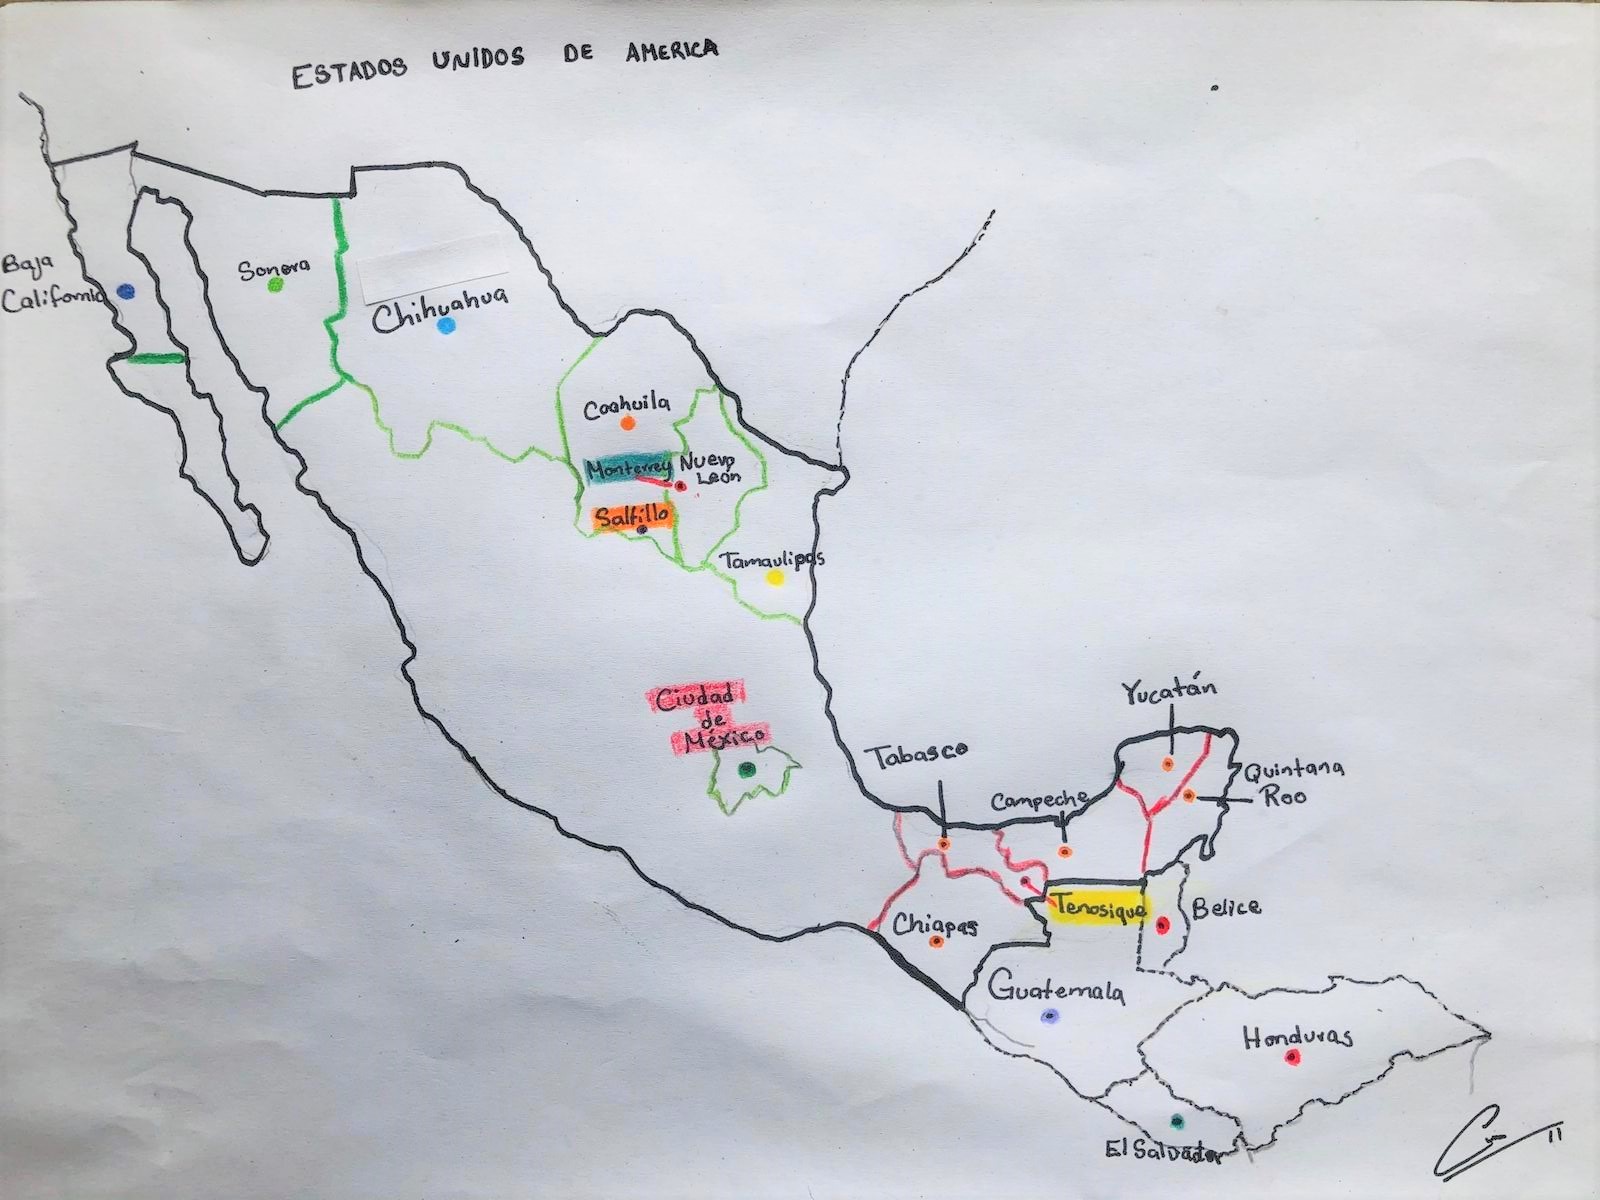 ESTADOS UNIDOS DE AMERICA
Baja
California
Sonora
Chihuahua
Coahuila
Monterrey
Nuevo
León
Saltillo
Tamaulipas
Ciudad
de
México
Yucatán
Tabasco
Campeche
Quintana
Roo
Tenosique
Belice
Chiapas
Guatemala
Honduras
El Salvador